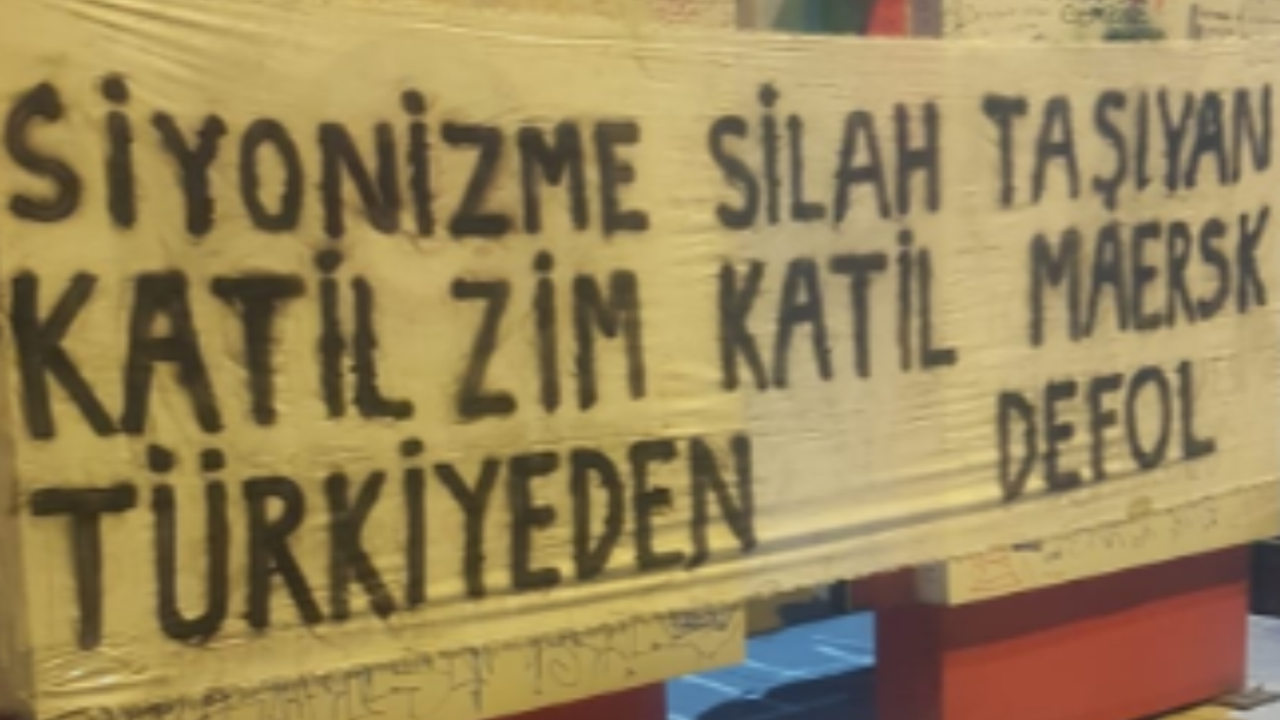 SİYONİZME SİLAH TAŞIYAN
KATİL ZİM KATİL MAERSK
TÜRKİYEDEN DEFOL